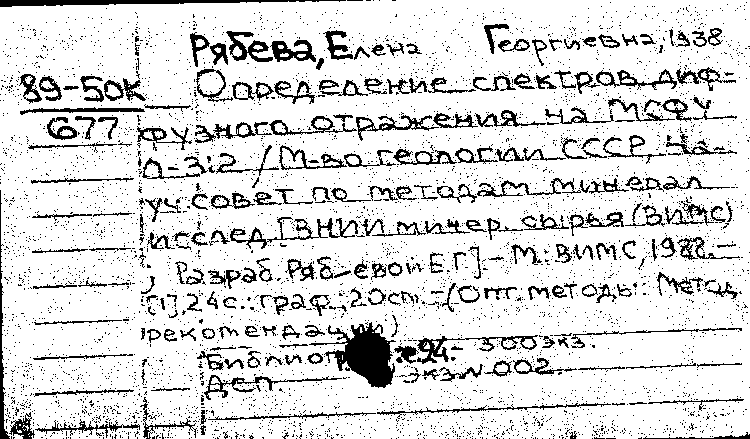 Рябева, Елена Георгиевна, 1938
89-50К
677
Определение спектров диф-
фузного отражения на МСФУ
Л-312 / М-во геологии СССР, На-
уч. совет по методам минерал
исслед [ВНИИ минер. сырья (ВИМС)
; Разраб. Рябевой Е Г]. – М.: ВИМС, 1988. –
[1], 24с.: граф.; 20см. – (Опт. методы: Метод.
рекомендации)
300экз.
ДСП. Экз № 002.